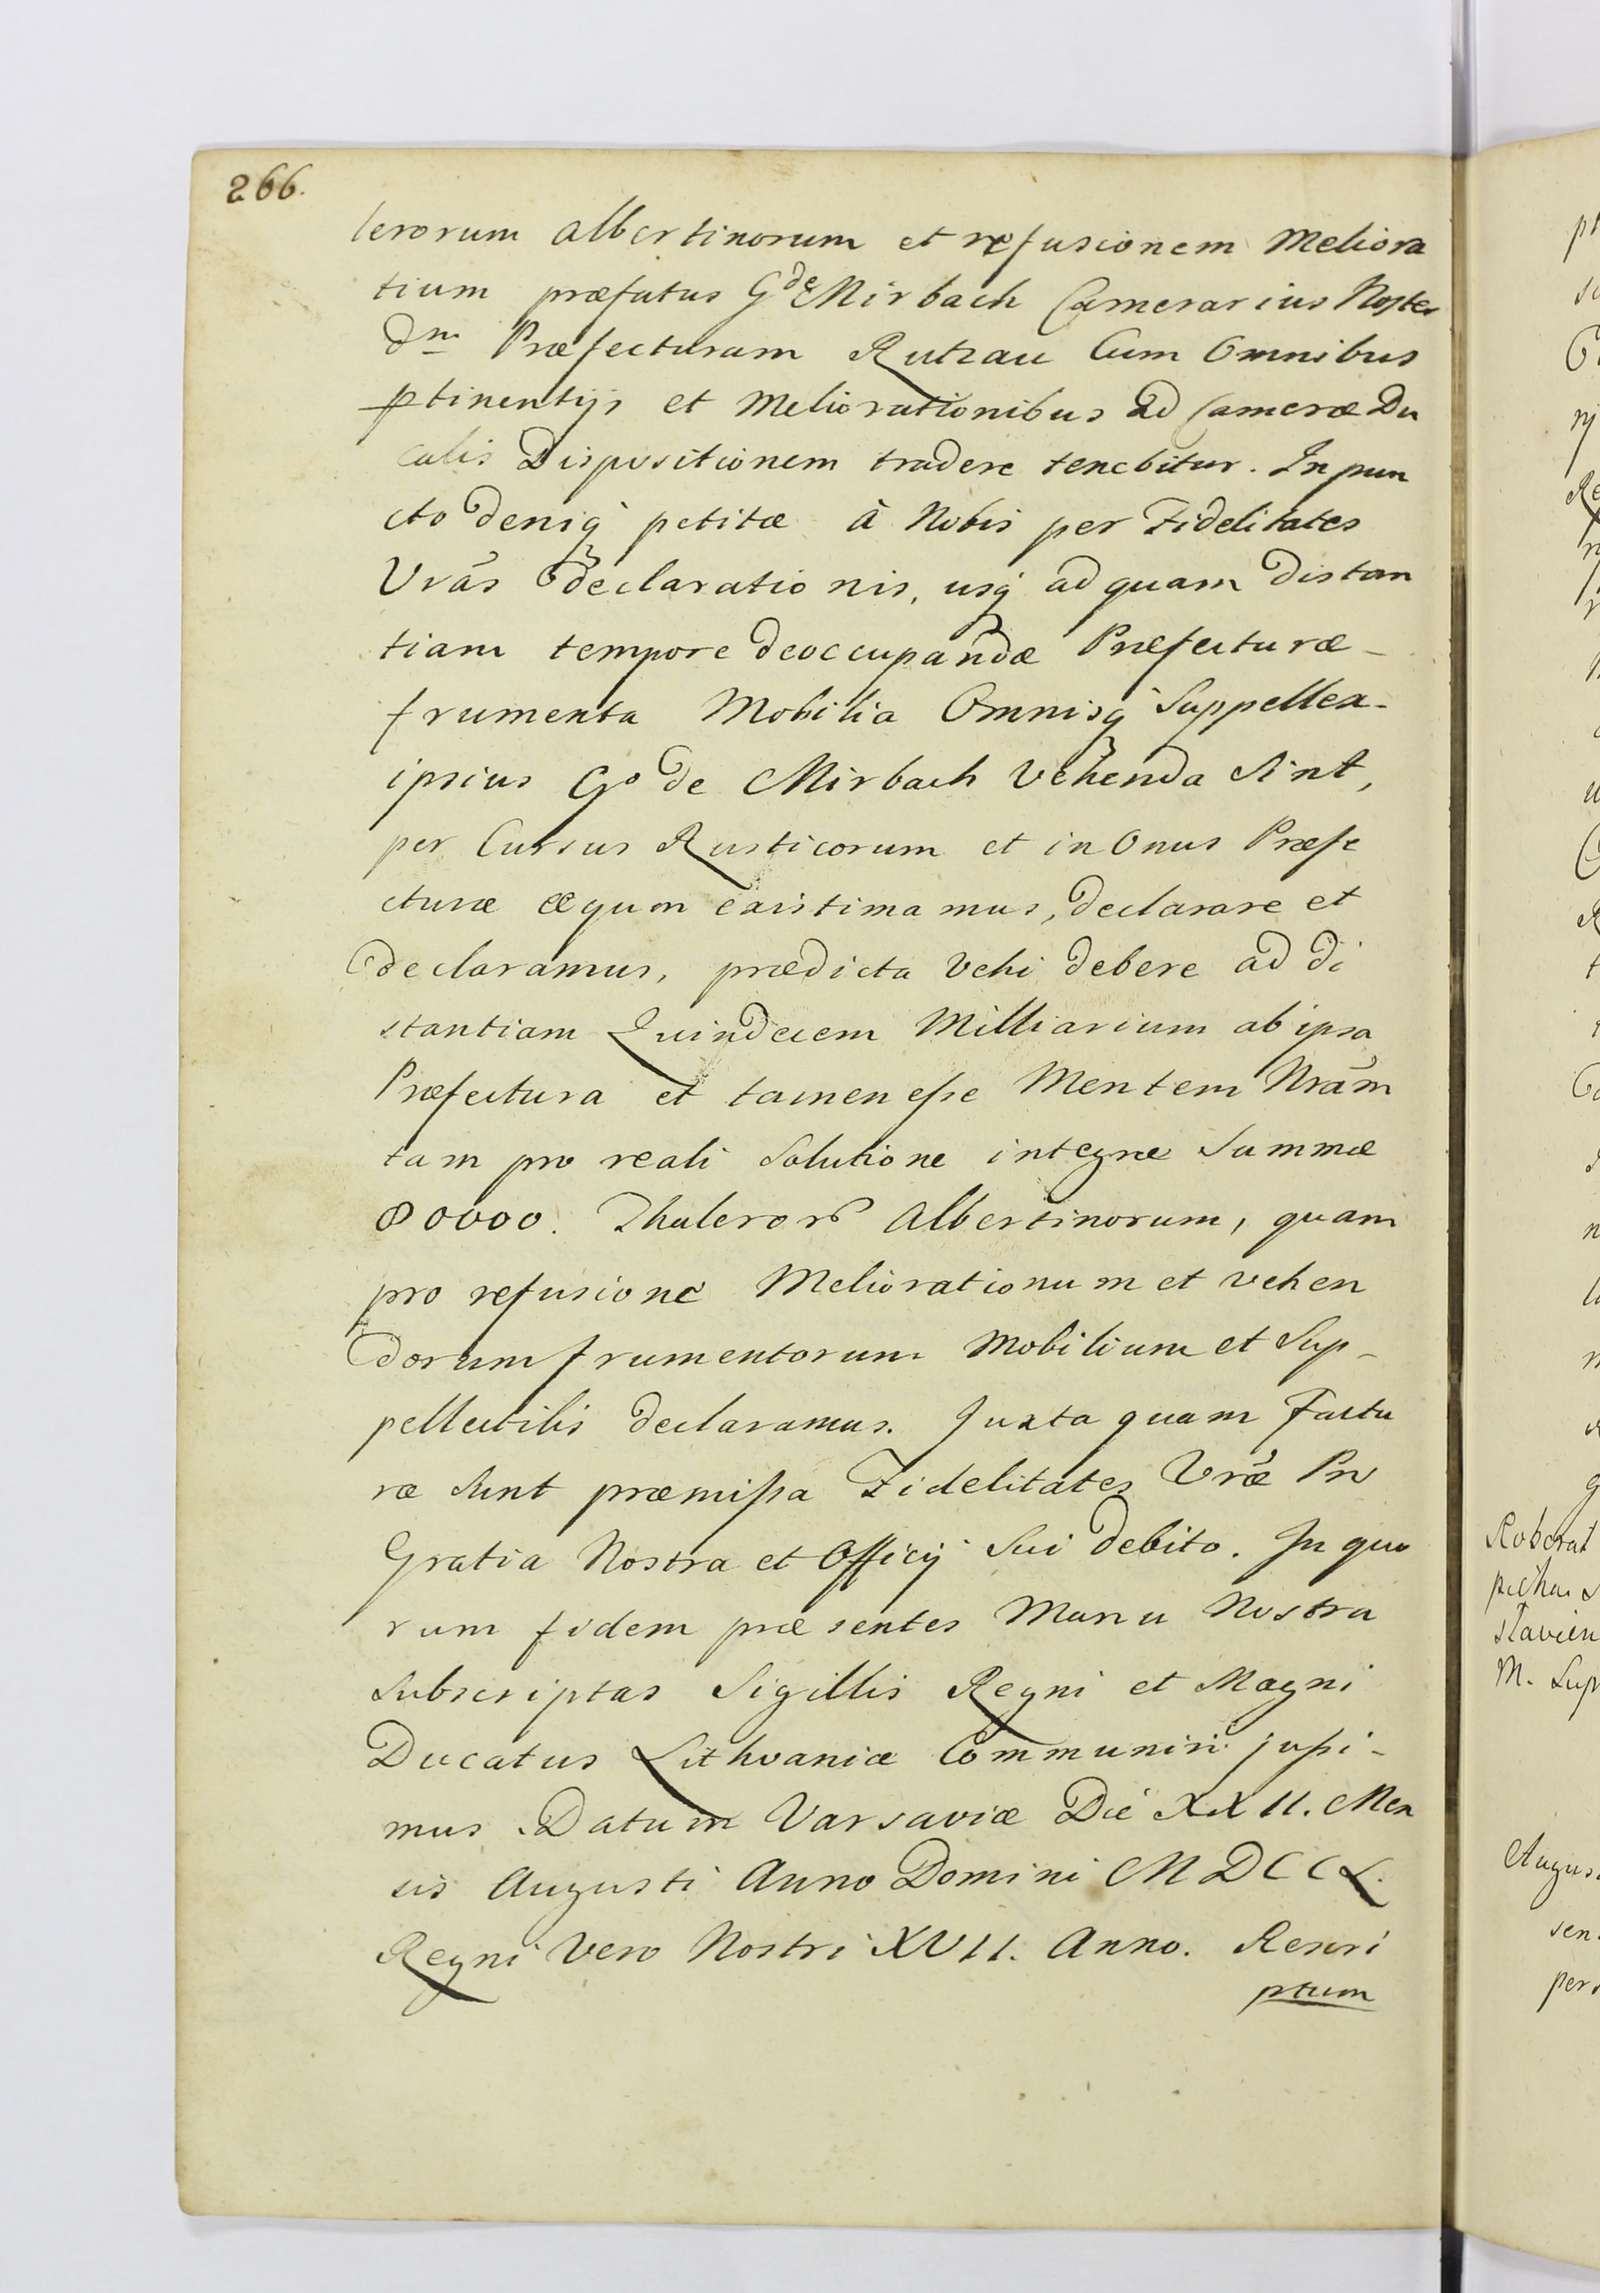 266.
lerorum Albertinorum et refusionem Meliora
tium præfatus G de Mirbach Camerarius Noster
dm Præfecturam Rutzau Cum Omnibus
ptinentijs et Meliorationibus ad Cameræ Du
calis Dispositionem tradere tenebitur. In pun
cto deniq petitæ à Nobis per Fidelitates
Vrãs declarationis, usq ad quam distan
tiam tempore deoccupandæ Præfecturæ -
frumenta Mobilia Omnisq Suppellex -
ipsius Go de Mirbach Vehenda Sint,
per Cursus Rusticorum et in Onus Præfe
cturæ æquon existimamus, declarare et
declaramus, prædicta Vehi debere ad di
stantiam Quindecem Milliarium ab ipsa
Præfectura et tamen esse Mentem Nrãm
tam pro reali Solutione integræ Summæ
80000. Thaleror Albertinorum, quam
pro refusione Meliorationum et vehen
dorum frumentorum Mobilium et Sup-
pellectilis declaramus. Juxta quam Factu
ræ Sunt præmissa Fidelitates Vræ Pro
Gratia Nostra et Officij Sui debito. In quo
rum fidem præsentes Manu Nostra
Subscriptas Sigillis Regni et Magni
Ducatus Lithvaniæ Communiri jussi -
mus. Datum Varsaviæ Die XXII. Men
sis Augusti Anno Domini MDCCL.
Regni Vero Nostri XVII. Anno. Rescri
ptum
Roborat
stavien
M. Sup
sen
per